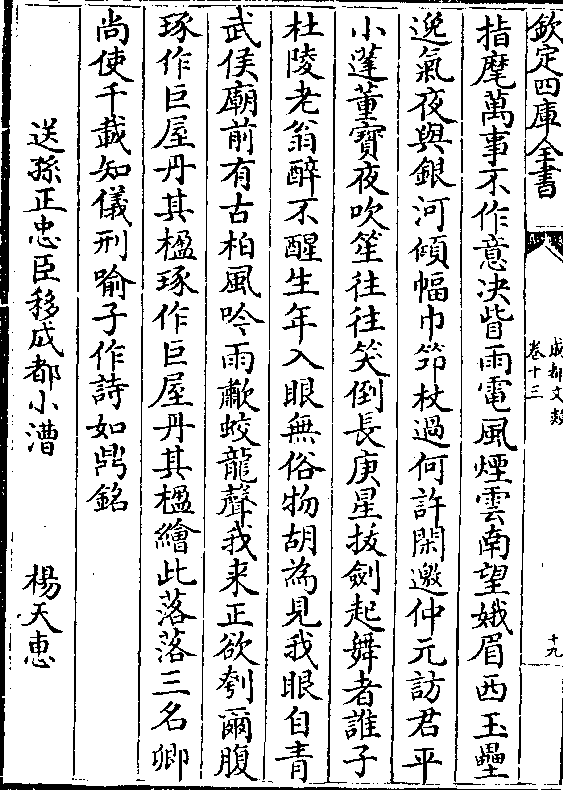 欽定四庫全書
成都文類
卷十三
十九
指麾萬事不作意決眥雨電風煙雲南望娥眉西玉壘
逸氣夜與銀河傾幅巾筇杖過何許閑邀仲元訪君平
小蓬董寶夜吹笙往往笑倒長庚星拔劍起舞者誰子
杜陵老翁醉不醒生年入眼無俗物胡為見我眼自青
武侯廟前有古柏風吟雨歗蛟龍聲我来正欲刳爾腹
琢作巨屋丹其楹琢作巨屋丹其楹繪此落落三名卿
尚使千載知儀刑喻子作詩如鼎銘
送孫正忠臣移成都小漕　楊天惠